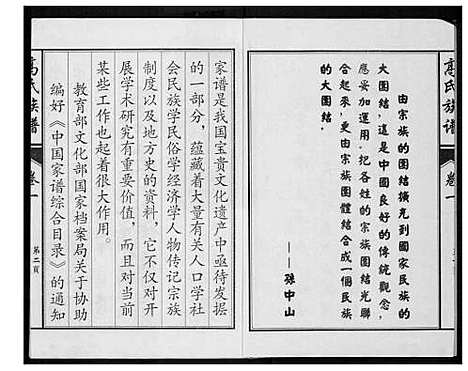 高氏族谱
卷一
由宗族的團結擴充到國家民族的
大團結，這是中國良好的傳統觀念，
應妥加運用。把各姓的宗族團結光聯
合起來，更由宗族團體結合成一個民族
的大團結。
——孫中山
家谱是我国宝贵文化遗产中亟待发掘
的一部分，蕴藏着大量有关人口学社
会民族学民俗学经济学人物传记宗族
制度以及地方史的资料，它不仅对开
展学术研究有重要价值，而且对当前
某些工作也起着很大作用。
教育部文化部国家档案局关于协助
编好《中国家谱综合目录》的通知
高氏族谱
卷一
第二页